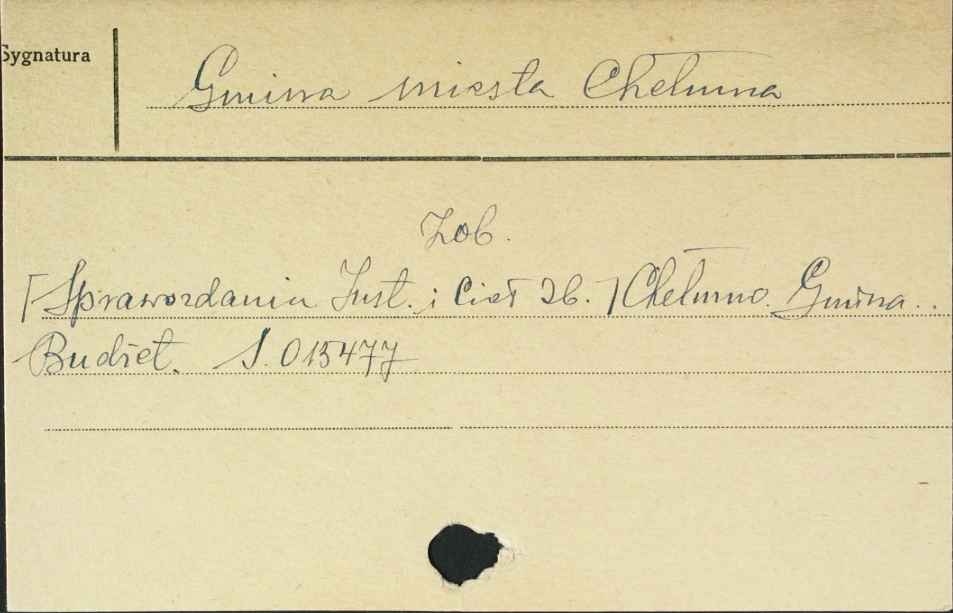 Sygnatura
Gmina miasta Chełmna
Zob.
[Sprawozdania Inst. i Ciał Zb.] Chełmno. Gmina..
Budżet. S. 015477